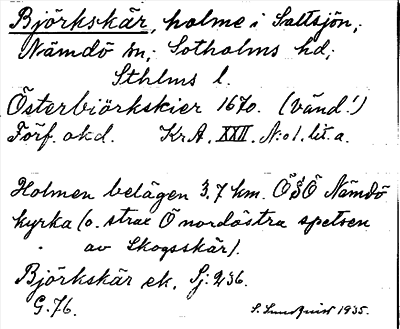 Björkskär, holme i Saltsjön,
Nämdö sn, Sotholms hd,
Sthlms l.
Österbiörkskier 1670. (vänd!)
Förf. okd. Kr.A. XXII. N:o 1. lit. a.
Holmen belägen 3,7 km. ÖSÖ Nämdö
kyrka (o. strax Ö nordöstra spetsen
av Skogsskär).
Björkskär ek. Sj: 236.
G. 76.
S. Lundquist 1935.